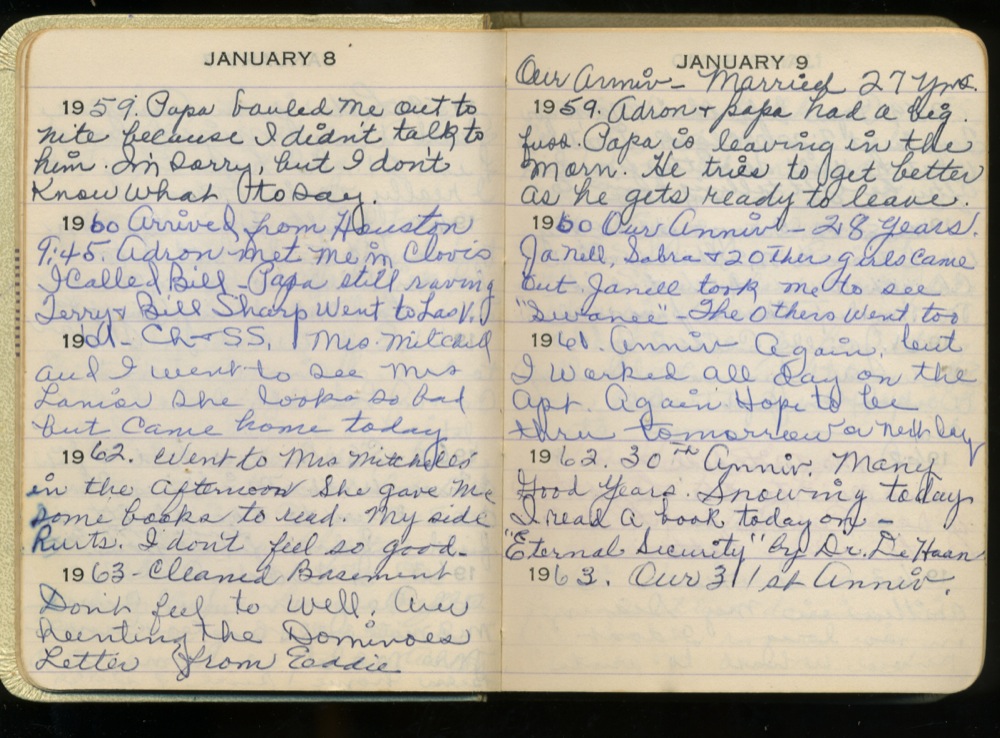 JANUARY 8
1959. Papa bauled me out to
nite because I didn't talk to
him. I'm sorry, but I don't
know what to say.
1960 Arrived from Houston
9:45. Adron met me in Clovis
I called Bill - Papa still raving
Terry & Bill Sharp went to Las V.
1961 - Ch & SS. Mrs. Mitchell
and I went to see Mrs
Lanier she looks so bad
but came home today
1962. Went to Mrs Mitchells
in the afternoon she gave me
some books to read. My side
hurts. I don't feel so good -
1963 - Cleaned Basement
Don't feel to well. Are
hunting the Dominoes
Letter from Eddie
JANUARY 9
Our Anniv - Married 27 yrs.
1959. Adron + papa had a big
fuss. Papa is leaving in the
morn. He tries to get better
as he gets ready to leave.
1960 Our Anniv - 28 years!
Janell, Sabra & 2 other girls came
out. Janell took me to see
"Suwanee" - The others went too
1961. Anniv again, but
I worked all day on the
Apt. Again Hope to be
thru tomorrow or next day
1962. 30th Anniv. Many
Good Years. Snowing today
I read a book today on -
"Eternal Security" by Dr. De Haan
1963. Our 31st Anniv.